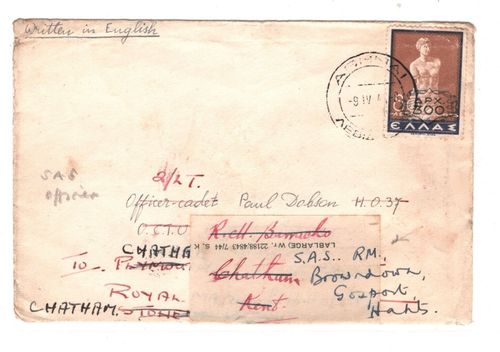 Written in English
ΑΘΗΝΑΙ
-9 IV 4
ΔΡΧ.
500
ΕΛΛΑΣ
SAS
Officer
2/LT.
Officer-cadet Paul Dobson H.O.37
O.C.T.U
R.M.
LABLARGE) Wt. 22188/4843 7/44 S. K
CHATHA
S.A.S. RM,
TO
Chatham
Browndown,
ROYAL
Gosport,
Kent
Hants.
CHATHAM.
STONE